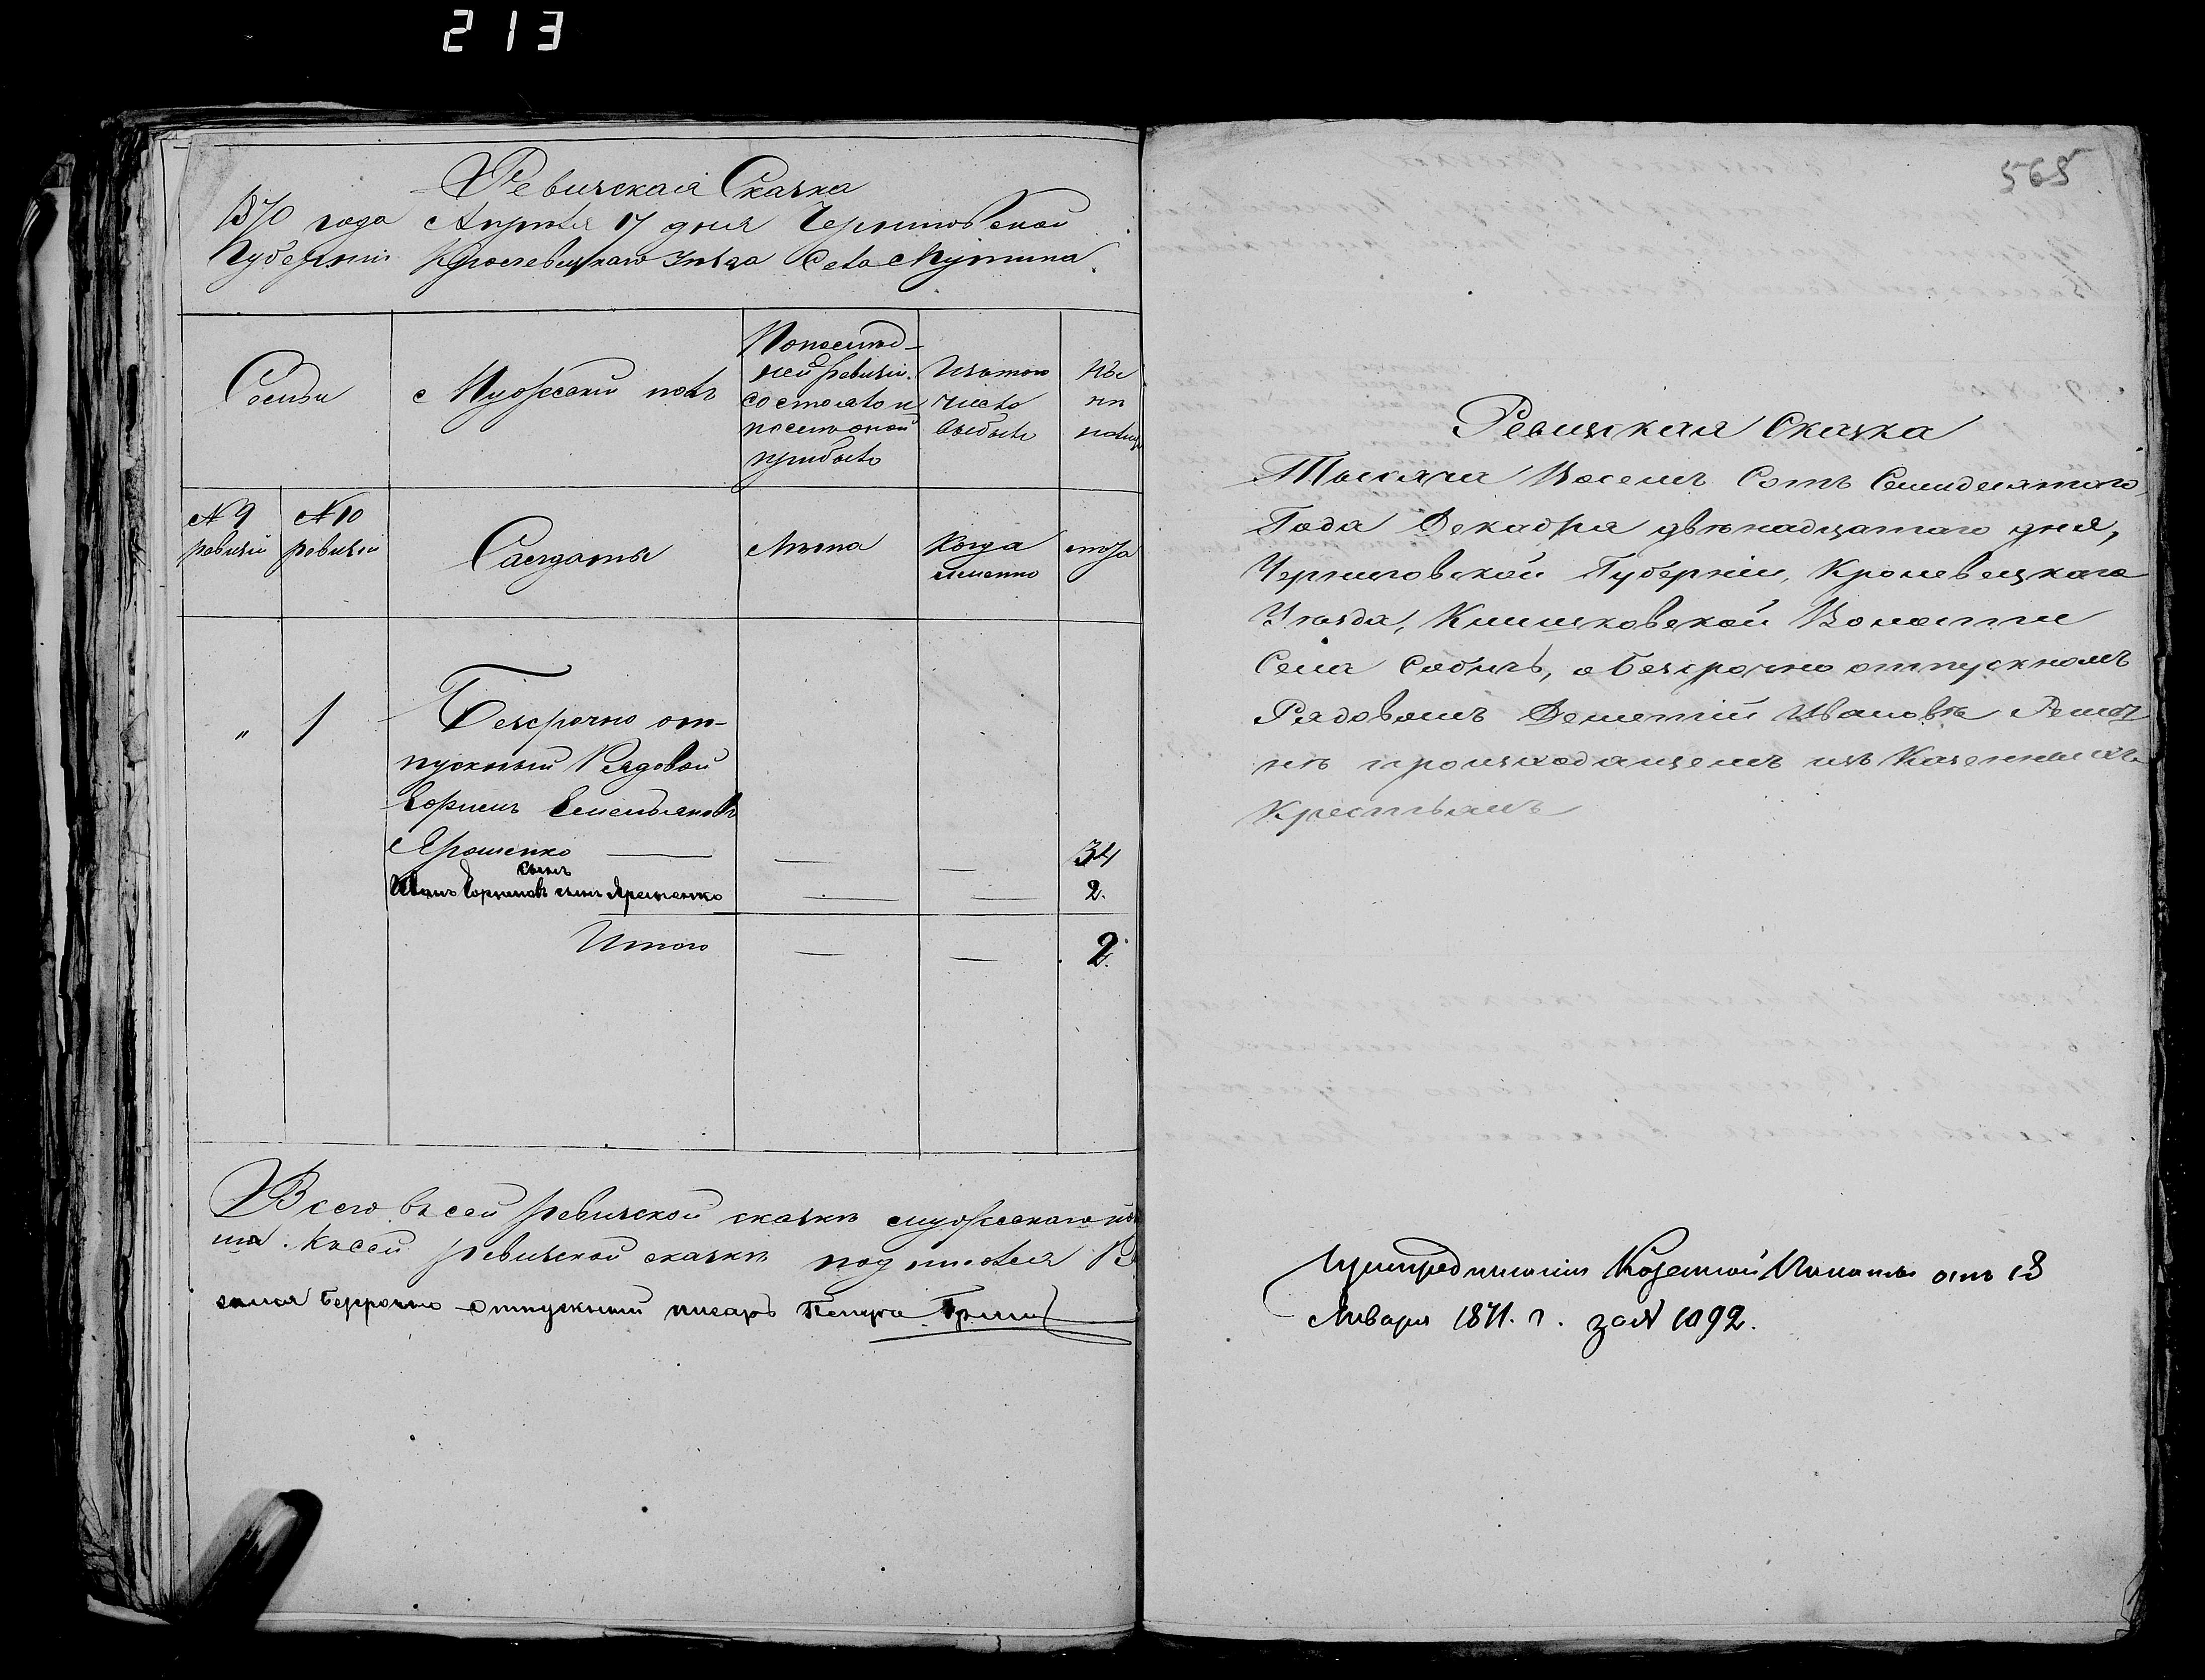 213
Ревизская Сказка
1870 года Апреля 17 дня Черниговской
Губернии Кролевецкаго Уезда Села Мутина.
Семьи
Мужеский полъ
По послед-
ней ревизіи
состояло и
после оной
прибыло
Изъ того
число
выбыло
Ны
не
на лиц
№ 9
ревизіи
№ 10
ревизіи
Солдаты
Лета
Когда
именно
"
1
Безсрочно от-
пускный Рядовой
Ефимъ Емельяновъ
Ярошенко — — — 34
сынъ
Иванъ Ефимовъ сынъ Ярошенко — — 2.
Итого — — 2.
Всего въ сей ревизской сказке мужескаго по
. Къ сей ревизской сказке
безсрочно отпускный писарь Петра
565
Ревизкая Сказка
Тысяча Восемъ Сотъ Семидесятого
Года Декабря двѣнадцатаго дня,
Черниговской Губерніи, Кролевецкаго
Уѣзда, Клишковской Волости
Села Собичь, о безсрочно отпускномъ
Рядовомъ Дементій Ивановѣ
нѣ происходящемъ изъ Казенныхъ
Крестьянъ
При предписаніи Казенной Палаты отъ 18
Января 1871. г. за № 1092.